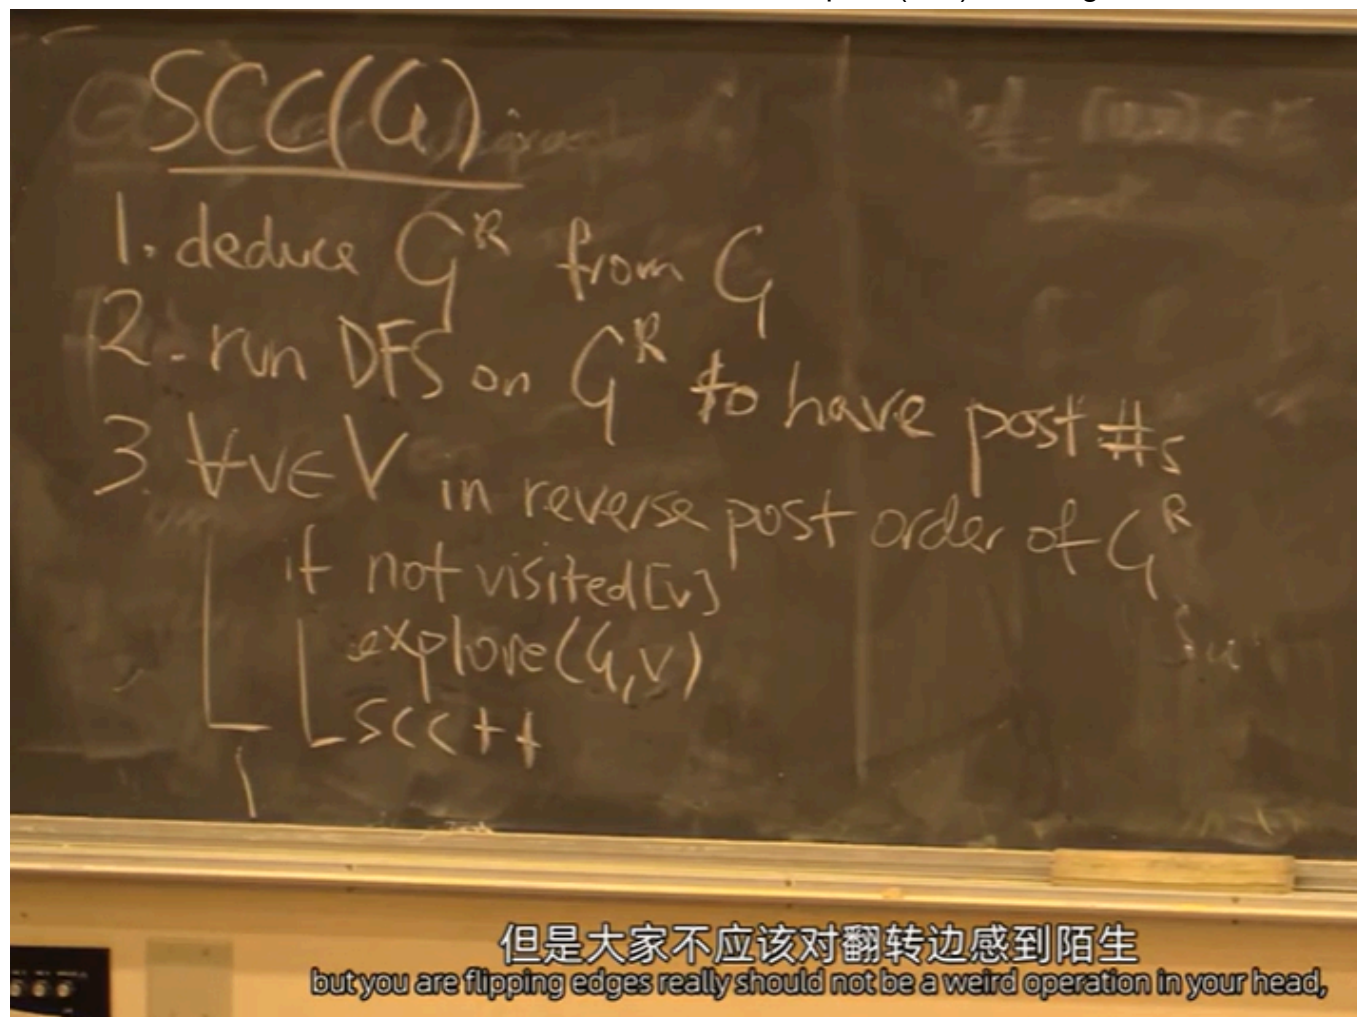 SCC(G)
1. deduce G^R from G
2. run DFS on G^R to have post #s
3. ∀v∈V in reverse post order of G^R
if not visited[v]
explore(G,v)
SCC++
但是大家不应该对翻转边感到陌生
but you are flipping edges really should not be a weird operation in your head,